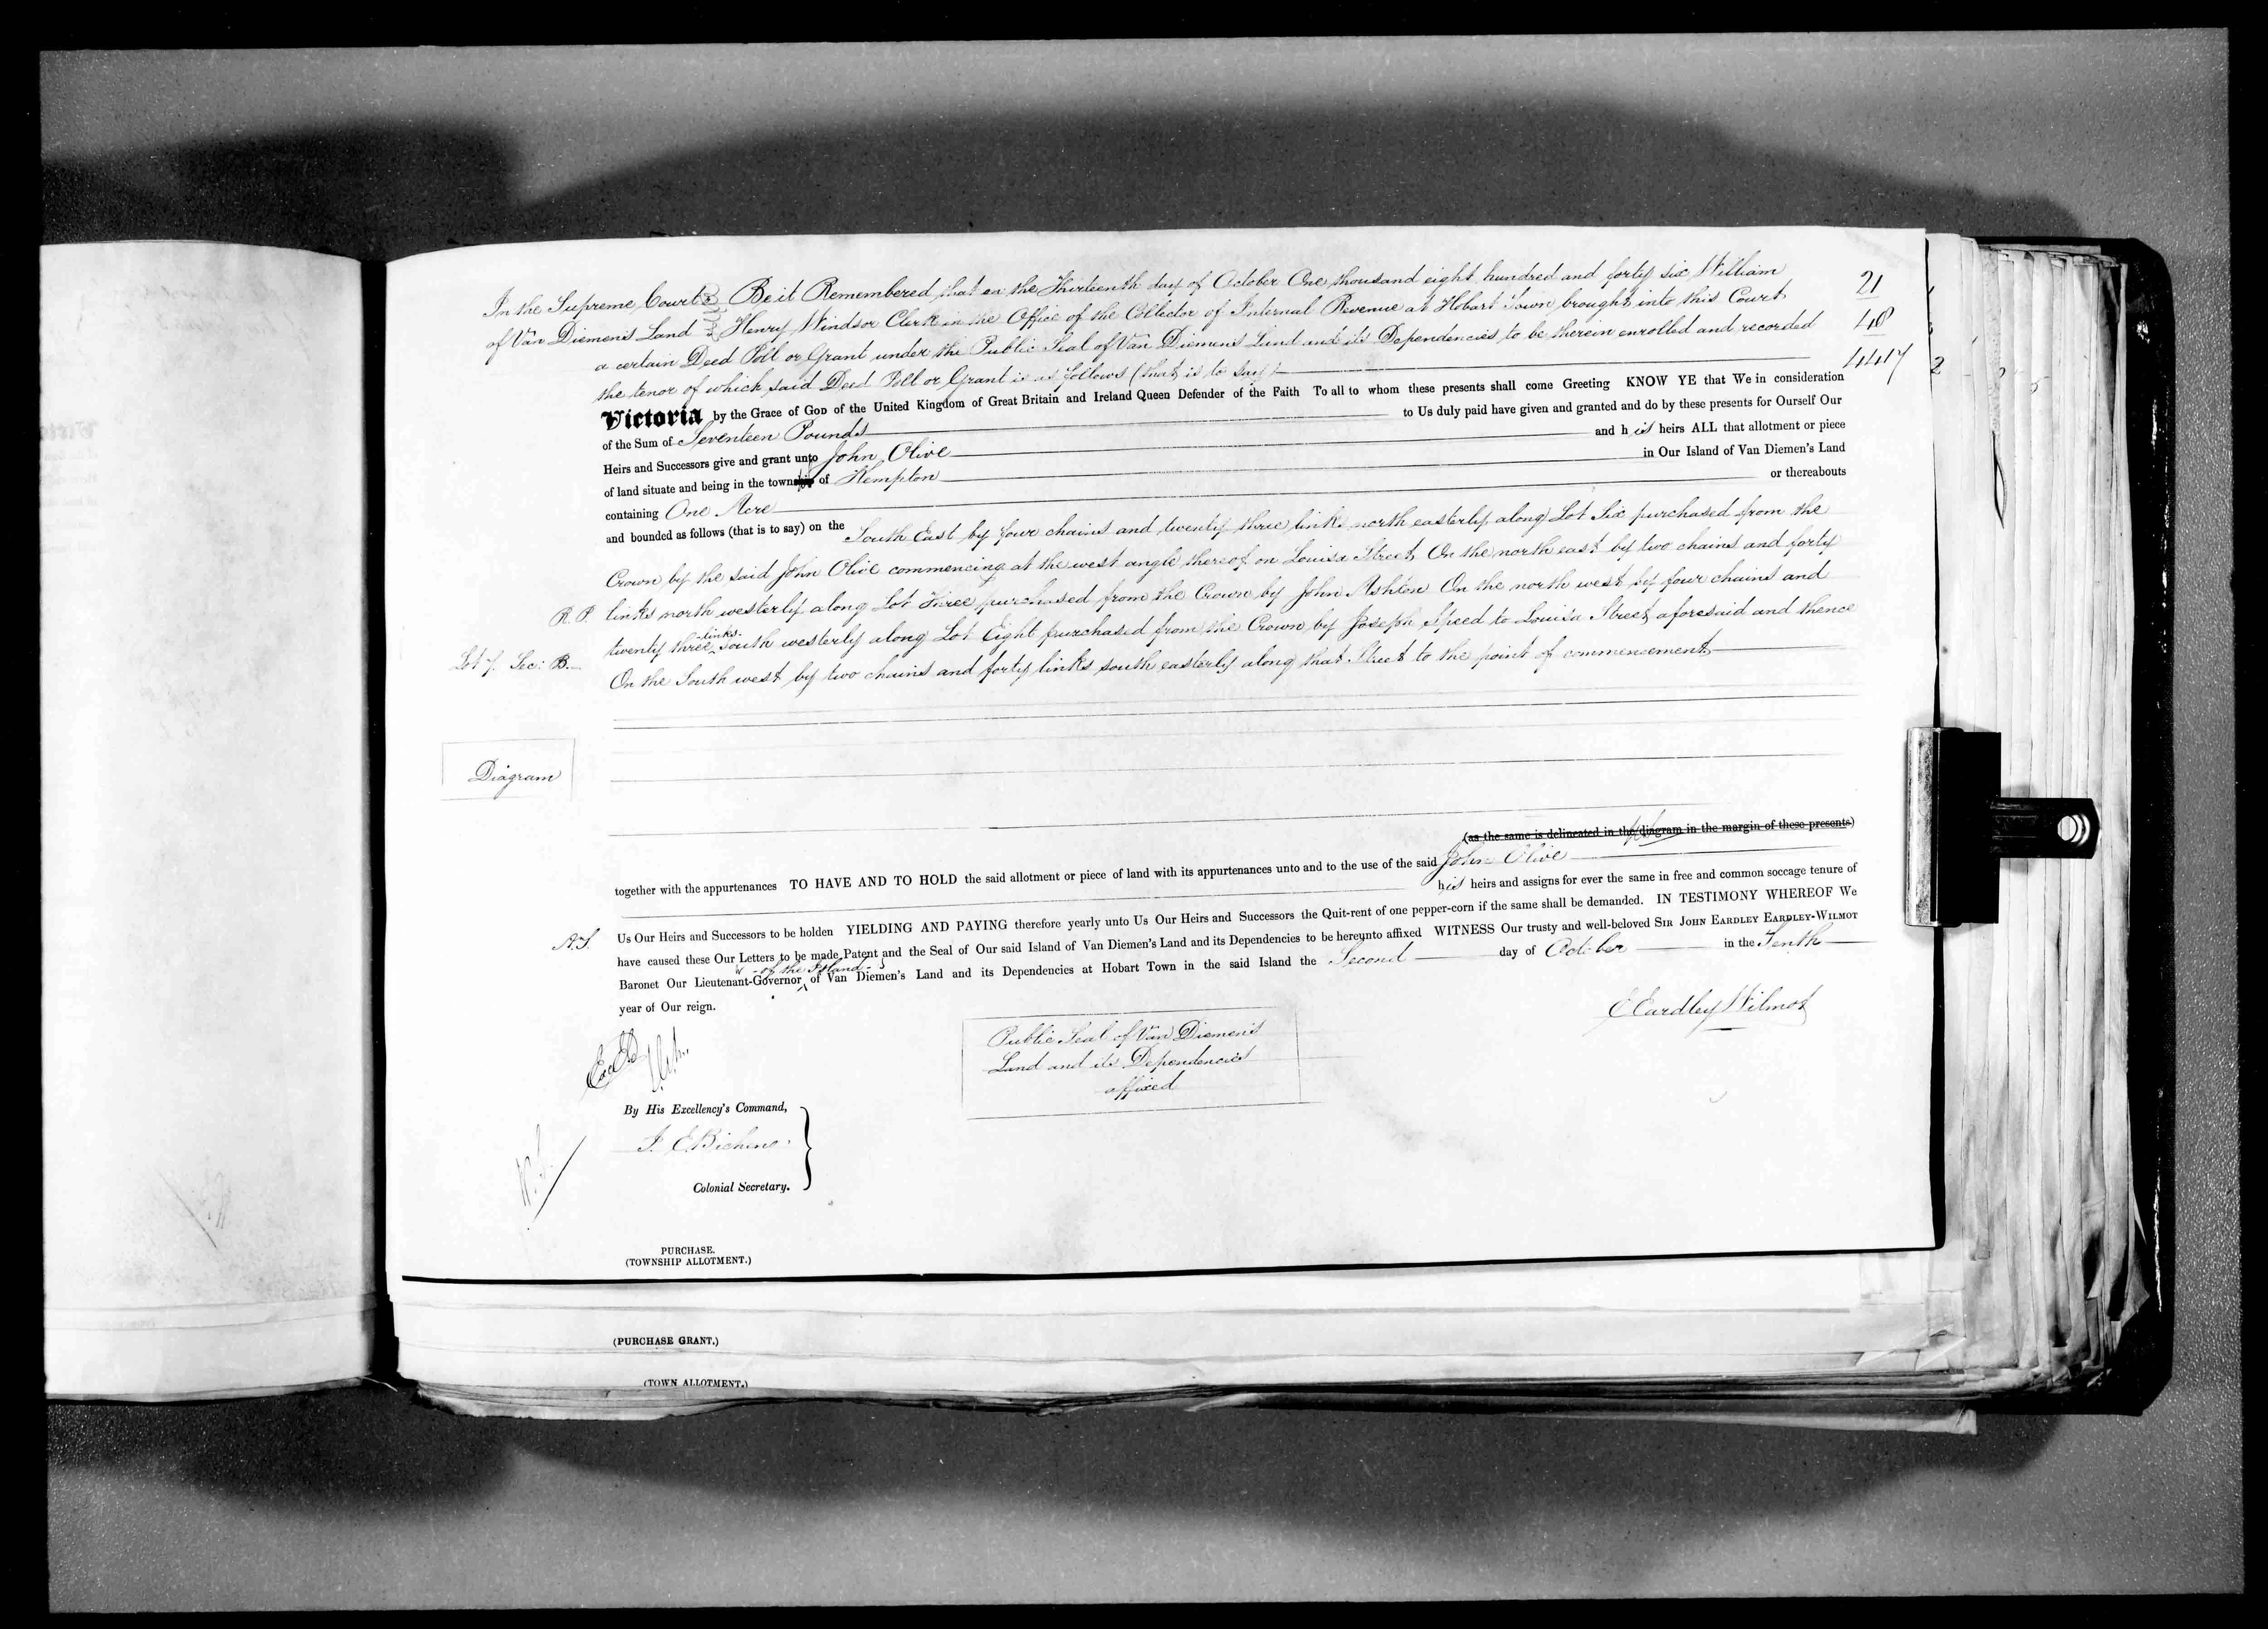 In the Supreme Court Be it Remembered that on the Thirteenth day of October One thousand eight hundred and forty six William
21
of Van Diemen's Land Henry Windsor Clerk in the Office of the Collector of Internal Revenue at Hobart Town brought into this Court
48
a certain Deed Poll or Grant under the Public Seal of Van Diemen's Land and its Dependencies to be therein enrolled and recorded
4417
2
the tenor of which said Deed Poll or Grant is as follows (that is to say)
Victoria by the Grace of God of the United Kingdom of Great Britain and Ireland Queen Defender of the Faith To all to whom these presents shall come Greeting KNOW YE that We in consideration
of the Sum of Seventeen Pounds to Us duly paid have given and granted and do by these presents for Ourself Our
Heirs and Successors give and grant unto John Olive and his heirs ALL that allotment or piece
of land situate and being in the township of Kempton in Our Island of Van Diemen's Land
containing One Acre or thereabouts
and bounded as follows (that is to say) on the South East by four chains and twenty three links north easterly along Lot Six purchased from the
Crown by the said John Olive commencing at the west angle thereof on Louisa Street On the north east by two chains and forty
R.P. links north westerly along Lot Three purchased from the Crown by John Ashton On the north west by four chains and
twenty three -links- south westerly along Lot Eight purchased from the Crown by Joseph Speed to Louisa Street aforesaid and thence
Lot 7. Sec: B. On the South west by two chains and forty links south easterly along that Street to the point of commencement
Diagram
(as the same is delineated in the diagram in the margin of these presents)
together with the appurtenances TO HAVE AND TO HOLD the said allotment or piece of land with its appurtenances unto and to the use of the said John Olive
his heirs and assigns for ever the same in free and common soccage tenure of
A.S. Us Our Heirs and Successors to be holden YIELDING AND PAYING therefore yearly unto Us Our Heirs and Successors the Quit-rent of one pepper-corn if the same shall be demanded. IN TESTIMONY WHEREOF We
have caused these Our Letters to be made Patent and the Seal of Our said Island of Van Diemen's Land and its Dependencies to be hereunto affixed WITNESS Our trusty and well-beloved SIR JOHN EARDLEY EARDLEY-WILMOT
Baronet Our Lieutenant-Governor -of the Island- of Van Diemen's Land and its Dependencies at Hobart Town in the said Island the Second day of October in the Tenth
year of Our reign.
E Eardley Wilmot
Public Seal of Van Diemen's
Land and its Dependencies
affixed
By His Excellency's Command,
J. E Bicheno
Colonial Secretary.
PURCHASE.
(TOWNSHIP ALLOTMENT.)
(PURCHASE GRANT.)
(TOWN ALLOTMENT.)